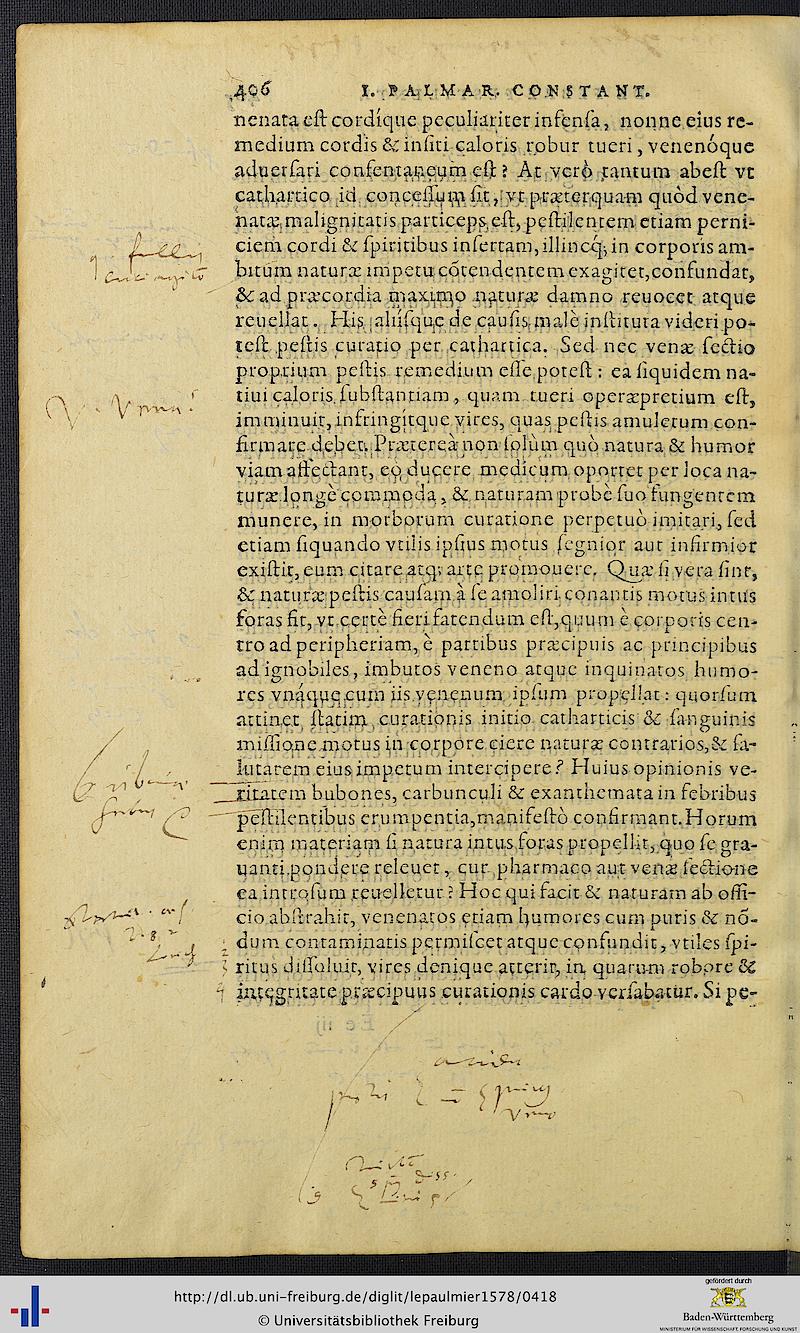 406 I. PALMAR. CONSTANT.
nenata eſt cordíque peculiariter infenſa, nonne eius re-
medium cordis & inſiti caloris robur tueri, venenóque
aduerſari conſentaneum eſt? At verò tantum abeſt vt
cathartico id conceſſum ſit, vt præterquam quòd vene-
natæ malignitatis particeps eſt, peſtilentem etiam perni-
ciem cordi & ſpiritibus inſertam, illincq; in corporis am-
bitum naturæ impetu cōtendentem exagitet, confundat,
& ad præcordia maximo naturæ damno reuocet atque
reuellat. His aliíſque de cauſis malè inſtituta videri po-
teſt peſtis curatio per cathartica. Sed nec venæ ſectio
proprium peſtis remedium eſſe poteſt: ea ſiquidem na-
tiui caloris ſubſtantiam, quam tueri operæpretium eſt,
imminuit, infringítque vires, quas peſtis amuletum con-
firmare debet. Prætereà non ſolùm quò natura & humor
viam affectant, eò ducere medicum oportet per loca na-
turæ longè commoda, & naturam probè ſuo fungentem
munere, in morborum curatione perpetuò imitari, ſed
etiam ſiquando vtilis ipſius motus ſegnior aut infirmior
exiſtit, eum citare atq; arte promouere. Quæ ſi vera ſint,
& naturæ peſtis cauſam à ſe amoliri conantis motus intus
foras fit, vt certè fieri fatendum eſt, quum è corporis cen-
tro ad peripheriam, è partibus præcipuis ac principibus
ad ignobiles, imbutos veneno atque inquinatos humo-
res vnáque cum iis venenum ipſum propellat: quorſum
attinet ſtatim curationis initio catharticis & ſanguinis
miſſione motus in corpore ciere naturæ contrarios, & ſa-
lutarem eius impetum intercipere? Huius opinionis ve-
ritatem bubones, carbunculi & exanthemata in febribus
peſtilentibus erumpentia, manifeſtò confirmant. Horum
enim materiam ſi natura intus foras propellit, quo ſe gra-
uanti pondere releuet, cur pharmaco aut venæ ſectione
ea introſum reuelletur? Hoc qui facit & naturam ab offi-
cio abſtrahit, venenatos etiam humores cum puris & nō-
dum contaminatis permiſcet atque confundit, vtiles ſpi-
ritus diſſoluit, vires denique atterit, in quarum robore &
integritate præcipuus curationis cardo verſabatur. Si pe-
http://dl.ub.uni-freiburg.de/diglit/lepaulmier1578/0418
© Universitätsbibliothek Freiburg
gefördert durch
Baden-Württemberg
MINISTERIUM FÜR WISSENSCHAFT, FORSCHUNG UND KUNST